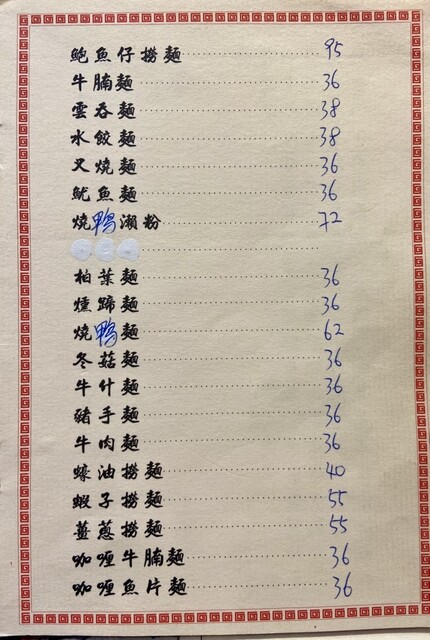 鮑魚仔撈麵 95
牛腩麵 36
雲吞麵 38
水餃麵 38
叉燒麵 36
魷魚麵 36
燒鴨瀨粉 72
柏葉麵 36
燻蹄麵 36
燒鴨麵 62
冬菇麵 36
牛什麵 36
豬手麵 36
牛肉麵 36
蠔油撈麵 40
蝦子撈麵 55
薑蔥撈麵 55
咖喱牛腩麵 36
咖喱魚片麵 36